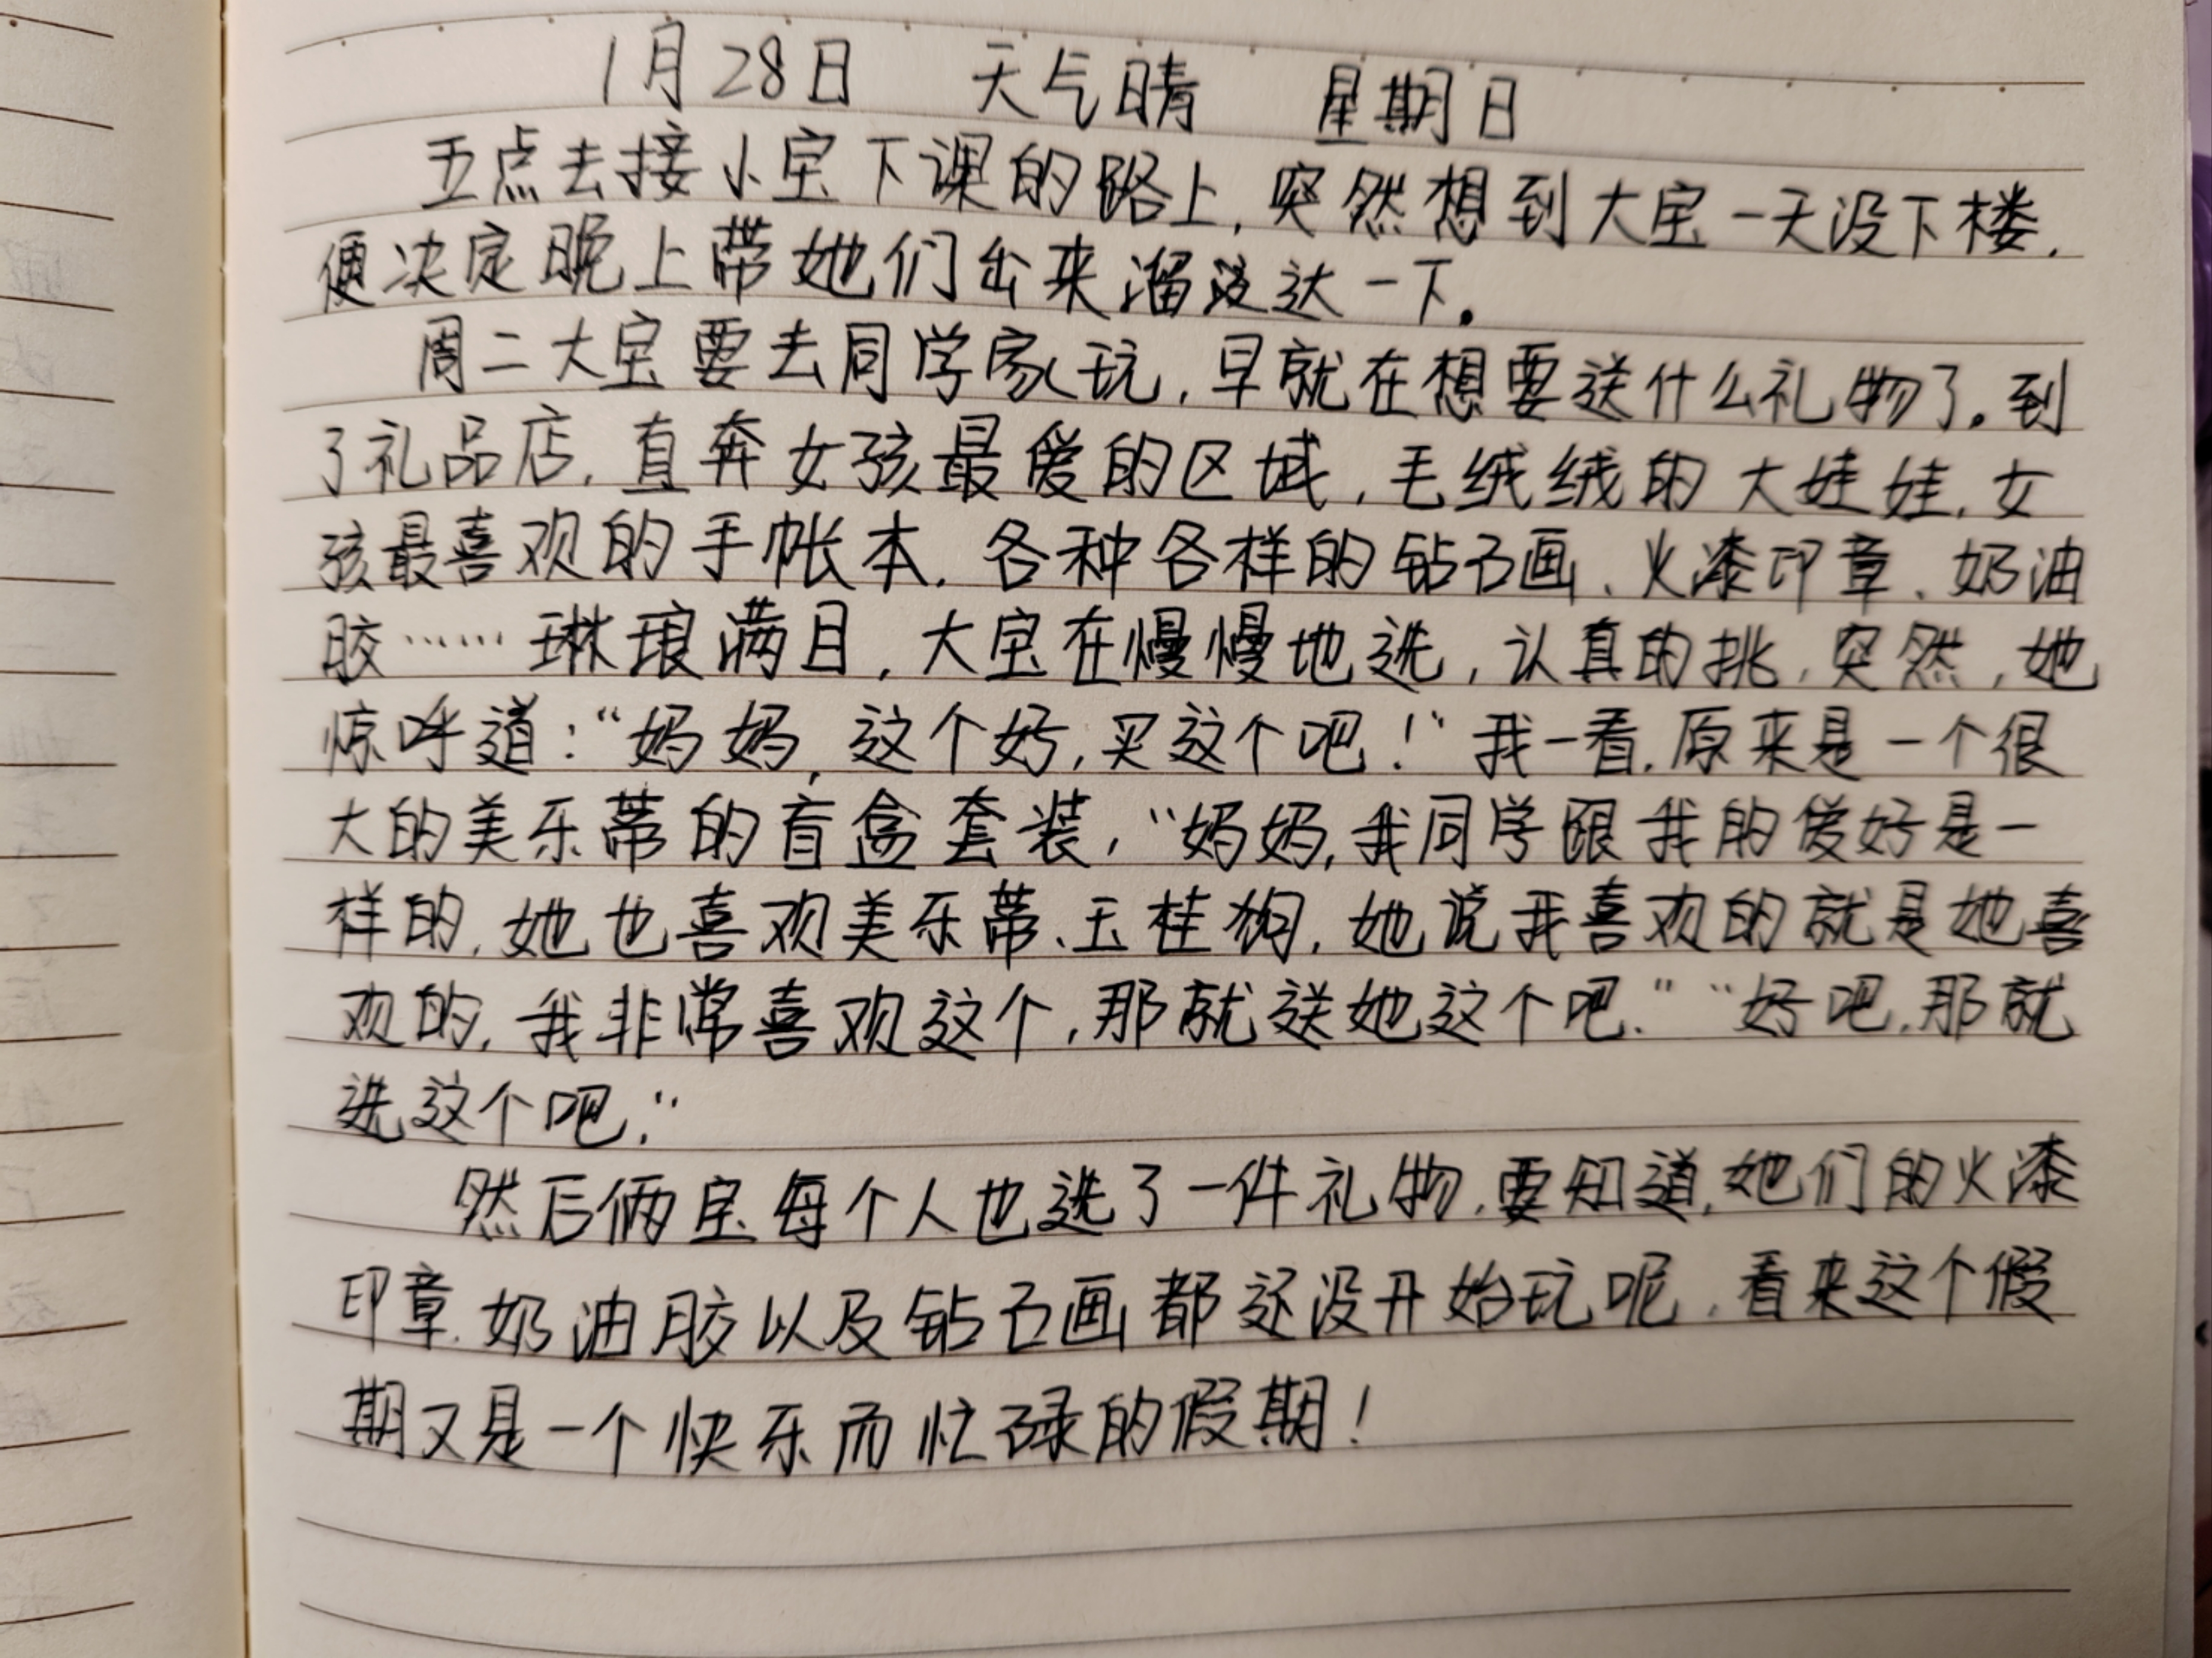 1月28日 天气晴 星期日
五点去接小宝下课的路上,突然想到大宝一天没下楼,
便决定晚上带她们出来溜达一下。
周二大宝要去同学家玩,早就在想要送什么礼物了。到
了礼品店,直奔女孩最爱的区域,毛绒绒的大娃娃,女
孩最喜欢的手帐本,各种各样的钻石画、火漆印章、奶油
胶……琳琅满目,大宝在慢慢地选,认真的挑,突然,她
惊呼道:“妈妈,这个好,买这个吧!”我一看,原来是一个很
大的美乐蒂的盲盒套装,“妈妈,我同学跟我的爱好是一
样的,她也喜欢美乐蒂、玉桂狗,她说我喜欢的就是她喜
欢的,我非常喜欢这个,那就送她这个吧.”“好吧,那就
选这个吧.”
然后俩宝每个人也选了一件礼物,要知道,她们的火漆
印章、奶油胶以及钻石画都还没开始玩呢,看来这个假
期又是一个快乐而忙碌的假期!